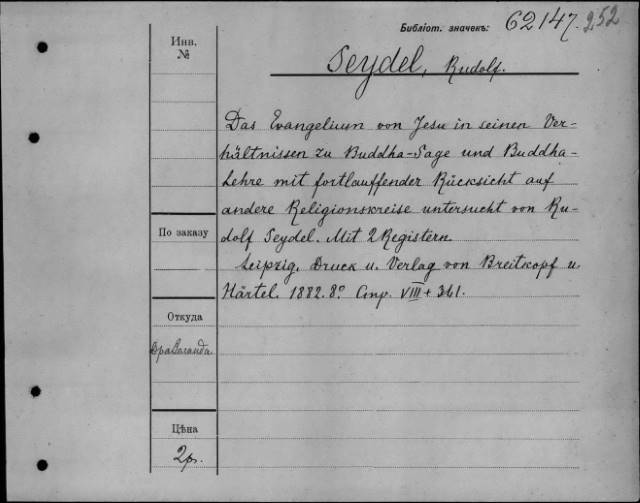 Библіот. значекъ: 62147. 252
Инв.
№
Seydel, Rudolf.
Das Evangelium von Jesu in seinen Ver-
hältnissen zu Buddha-Sage und Buddha-
Lehre mit fortlauffender Rücksicht auf
andere Religionskreise untersucht von Ru-
dolf Seydel. Mit 2 Registern.
Leipzig. Druck u. Verlag von Breitkopf u.
Härtel. 1882. 8º. Стр. VIII + 361.
По заказу
Откуда
Цѣна
2р.